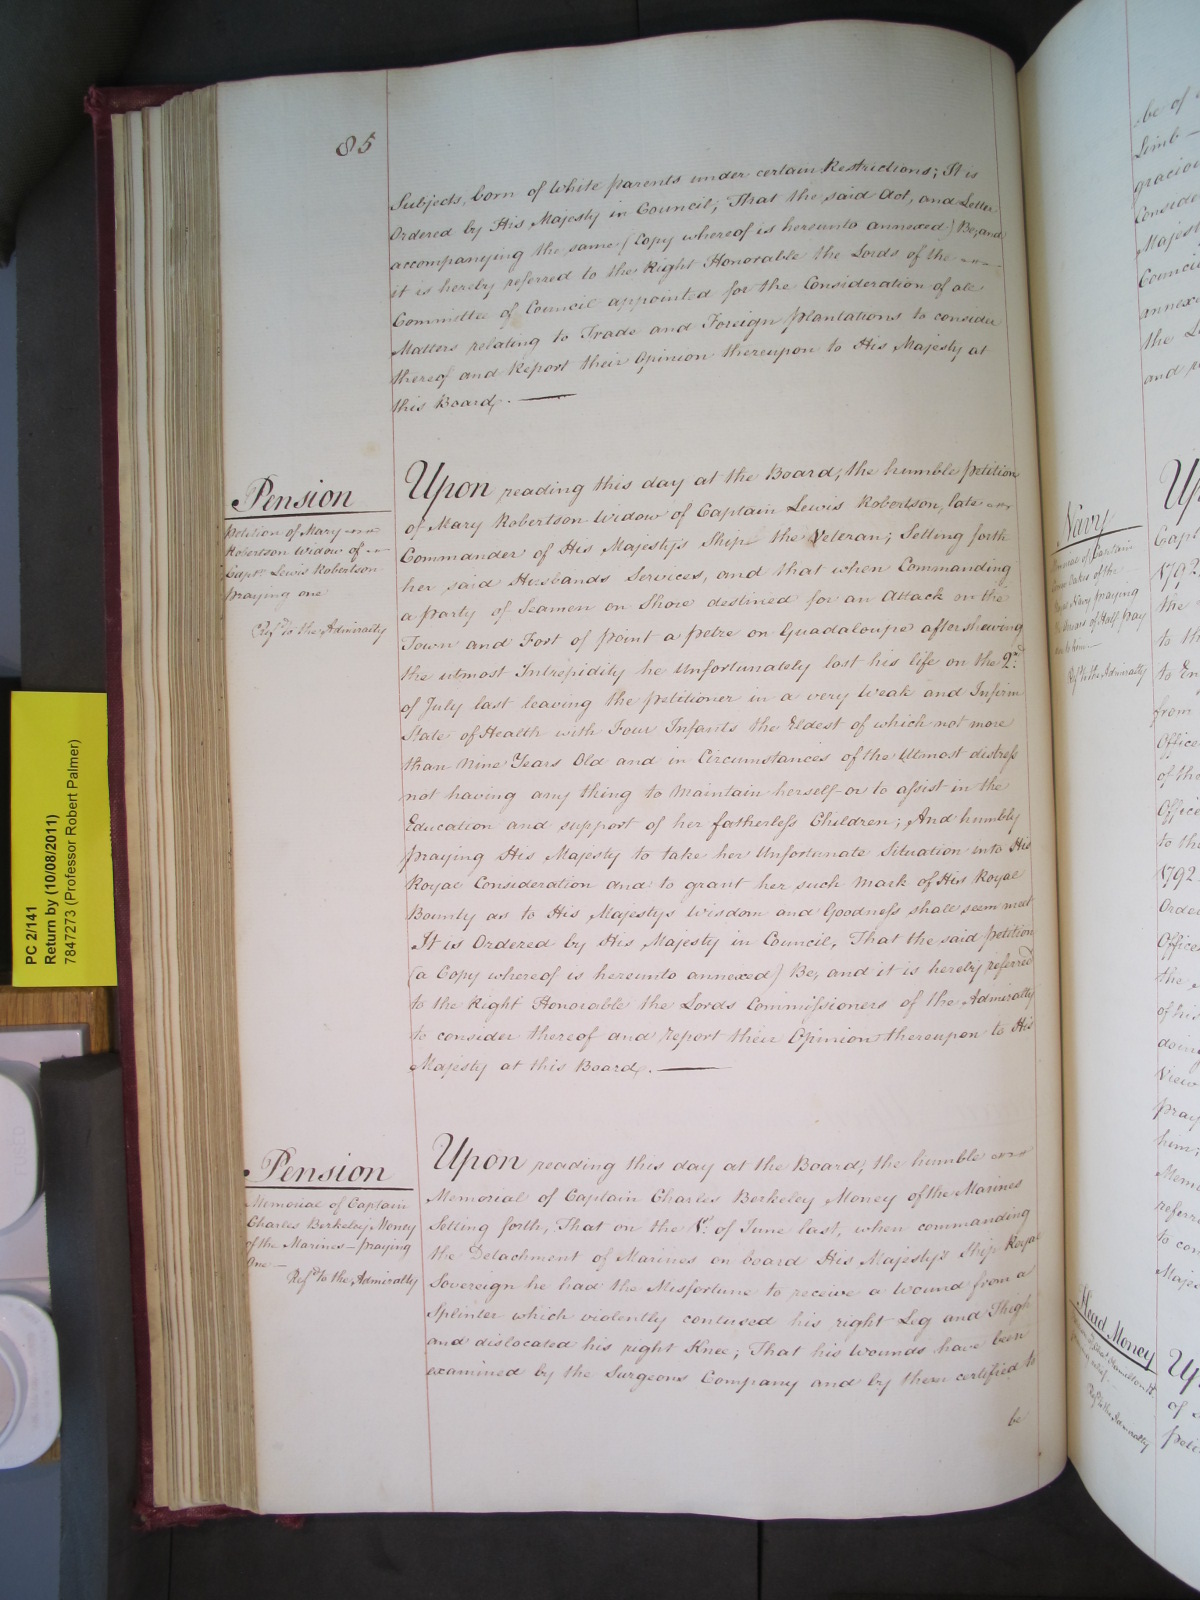 85
Subjects, born of White parents under certain Restrictions; It is
Ordered by His Majesty in Council, That the said Act, and Letter
accompanying the same (Copy whereof is hereunto annexed) Be, and
it is hereby referred to the Right Honorable the Lords of the
Committee of Council appointed for the Consideration of all
Matters relating to Trade and Foreign Plantations to consider
thereof and Report their Opinion thereupon to His Majesty at
this Board.
Pension
Petition of Mary
Robertson Widow of
Capt. Lewis Robertson
praying one
Ref.d to the Admiralty
Upon reading this day at the Board, the humble petition
of Mary Robertson Widow of Captain Lewis Robertson, late
Commander of His Majesty's Ship the Veteran; Setting forth
her said Husbands Services, and that when Commanding
a party of Seamen on Shore destined for an Attack on the
Town and Fort of point a petre on Guadaloupe after shewing
the utmost Intrepidity he Unfortunately lost his life on the 2nd
of July last leaving the petitioner in a very Weak and Infirm
State of Health with Four Infants the Eldest of which not more
than Nine Years Old and in Circumstances of the Utmost distress
not having any thing to Maintain herself or to assist in the
Education and support of her fatherless Children; And humbly
praying His Majesty to take her Unfortunate Situation into His
Royal Consideration and to grant her such Mark of His Royal
Bounty as to His Majesty's Wisdom and Goodness shall seem meet
It is Ordered by His Majesty in Council, That the said petition
(a Copy whereof is hereunto annexed) Be, and it is hereby referred
to the Right Honorable the Lords Commissioners of the Admiralty
to consider thereof and report their Opinion thereupon to His
Majesty at this Board.
Pension
Memorial of Captain
Charles Berkeley Money
of the Marines - praying
One
Ref.d to the Admiralty
Upon reading this day at the Board, the humble
Memorial of Captain Charles Berkeley Money of the Marines
Setting forth, That on the 1st of June last, when commanding
the Detachment of Marines on board His Majesty's Ship Royal
Sovereign he had the Misfortune to receive a Wound from a
Splinter which violently contused his right Leg and Thigh
and dislocated his right Knee; That his Wounds have been
examined by the Surgeons Company and by them certified to
be
PC 2/141
Return by (10/08/2011)
7847273 (Professor Robert Palmer)
be of
Limb
gracio
Conside
Majest
Counci
annex
the L
and r
Navy
Ref.d to the Admiralty
Up
Capt
1792
the
to th
to En
from
Office
of the
Office
to the
1792
Orde
Office
the
of his
doin
View
pray
him,
Mem
referr
to con
Majes
Head Money
Ref.d to the Admiralty
Up
of
peti